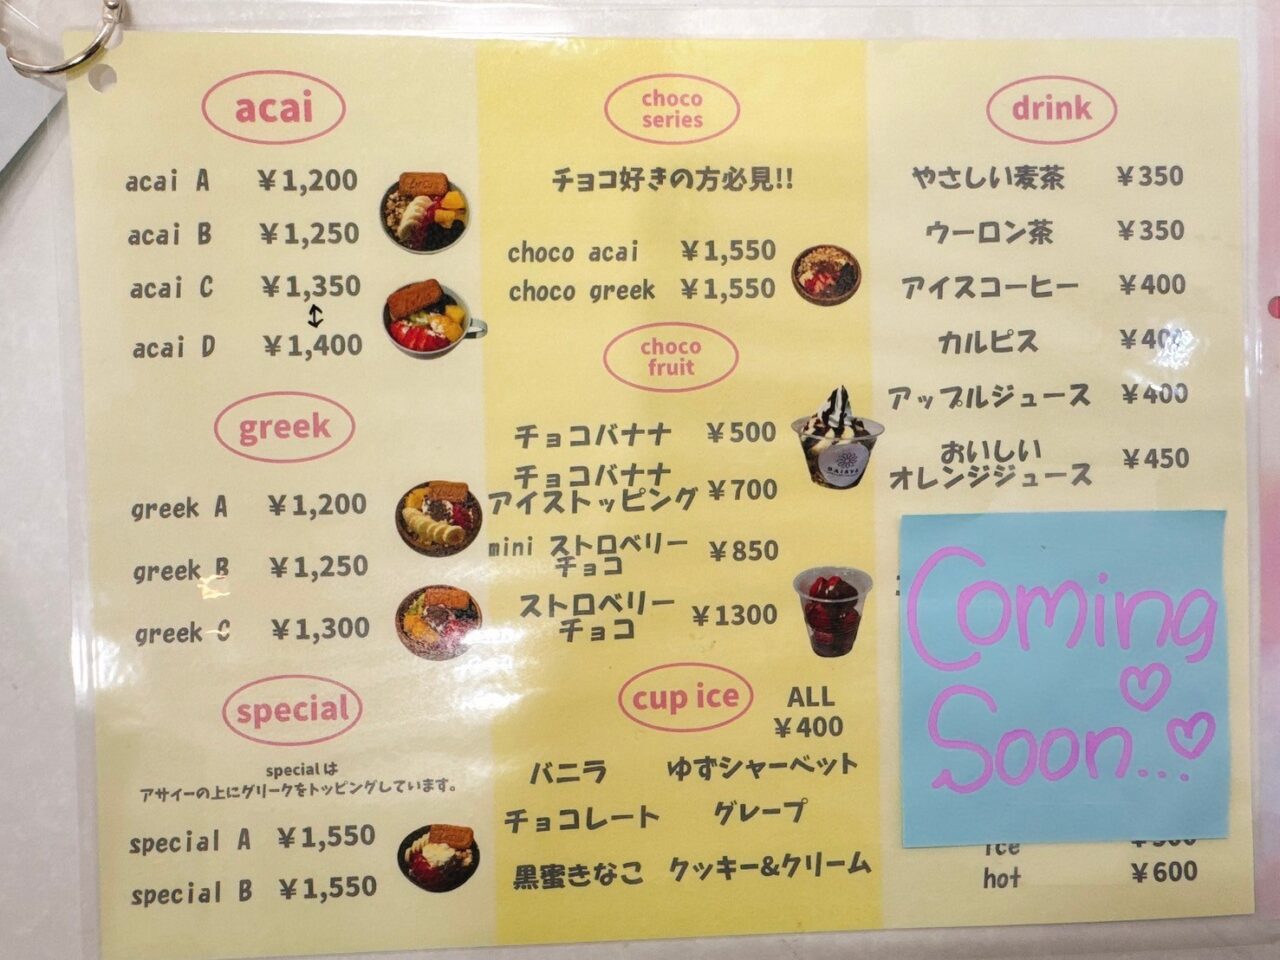 acai
acai A ¥1,200
acai B ¥1,250
acai C ¥1,350
↕
acai D ¥1,400
greek
greek A ¥1,200
greek B ¥1,250
greek C ¥1,300
special
specialは
アサイーの上にグリークをトッピングしています。
special A ¥1,550
special B ¥1,550
choco
series
チョコ好きの方必見!!
choco acai ¥1,550
choco greek ¥1,550
choco
fruit
チョコバナナ ¥500
チョコバナナ
アイストッピング ¥700
mini ストロベリー
チョコ ¥850
ストロベリー
チョコ ¥1300
cup ice
ALL
¥400
バニラ ゆずシャーベット
チョコレート グレープ
黒蜜きなこ クッキー&クリーム
drink
やさしい麦茶 ¥350
ウーロン茶 ¥350
アイスコーヒー ¥400
カルピス ¥400
アップルジュース ¥400
おいしい
オレンジジュース ¥450
Coming
Soon...
ice
hot ¥600